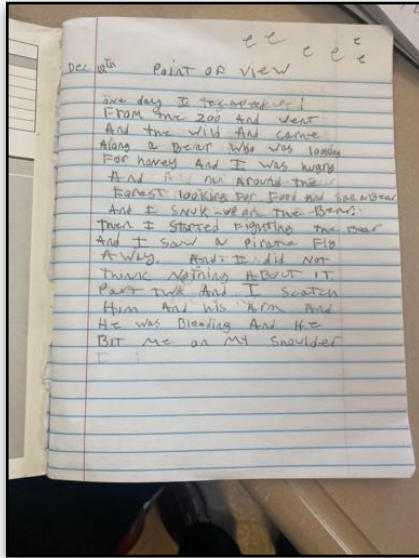 e e e e e e
Dec 12th Point of view
one day I
From the zoo And went
And the wild And came
Along a Bear who was looking
For honey And I was hugry
And run Around the
Forest looking For Food and Saw a Bear
And I Snuk up on the Bear.
Then I Started Fighting the Bear
And I Saw a Pirate Fly
A way. And I did Not
Think Nothing ABOUT IT
Part two And I Scatch
Him And his Arm And
He was Bleeding And He
BIT Me on My Shoulder